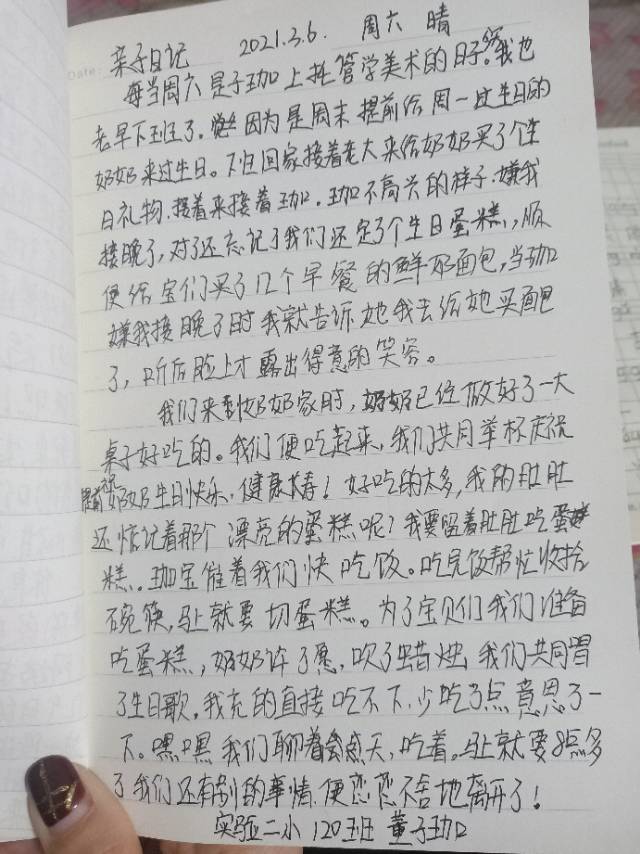 亲子日记 2021.3.6. 周六 晴
每当周六是子珈上托管学美术的日子。我也
老早下班了。因为是周末提前给周一过生日的
奶奶来过生日。下班回家接着老大来给奶奶买了个生
日礼物,提着来接着珈。珈不高兴的样子,嫌我
接晚了,对了还忘记了我们还定了个生日蛋糕,顺
便给宝们买了12个早餐的鲜奶面包,当珈
嫌我接晚了时我就告诉她我去给她买面包
了,听后脸上才露出得意的笑容。
我们来到奶奶家时,奶奶已经做好了一大
桌子好吃的。我们便吃起来,我们共同举杯庆祝
提前祝奶奶生日快乐,健康长寿!好吃的太多,我的肚肚
还惦记着那个漂亮的蛋糕呢?我要留着肚肚吃蛋
糕。珈宝催着我们快吃饭。吃完饭帮忙收拾
碗筷,马上就要切蛋糕。为了宝贝们我们准备
吃蛋糕,奶奶许了愿,吹了蜡烛,我们共同冒
了生日歌。我充的直接吃不下,少吃了点意思了一
下。嘿嘿我们聊着天,吃着。马上就要8点多
了我们还有别的事情,便恋恋不舍地离开了!
实验二小 120班 董子珈